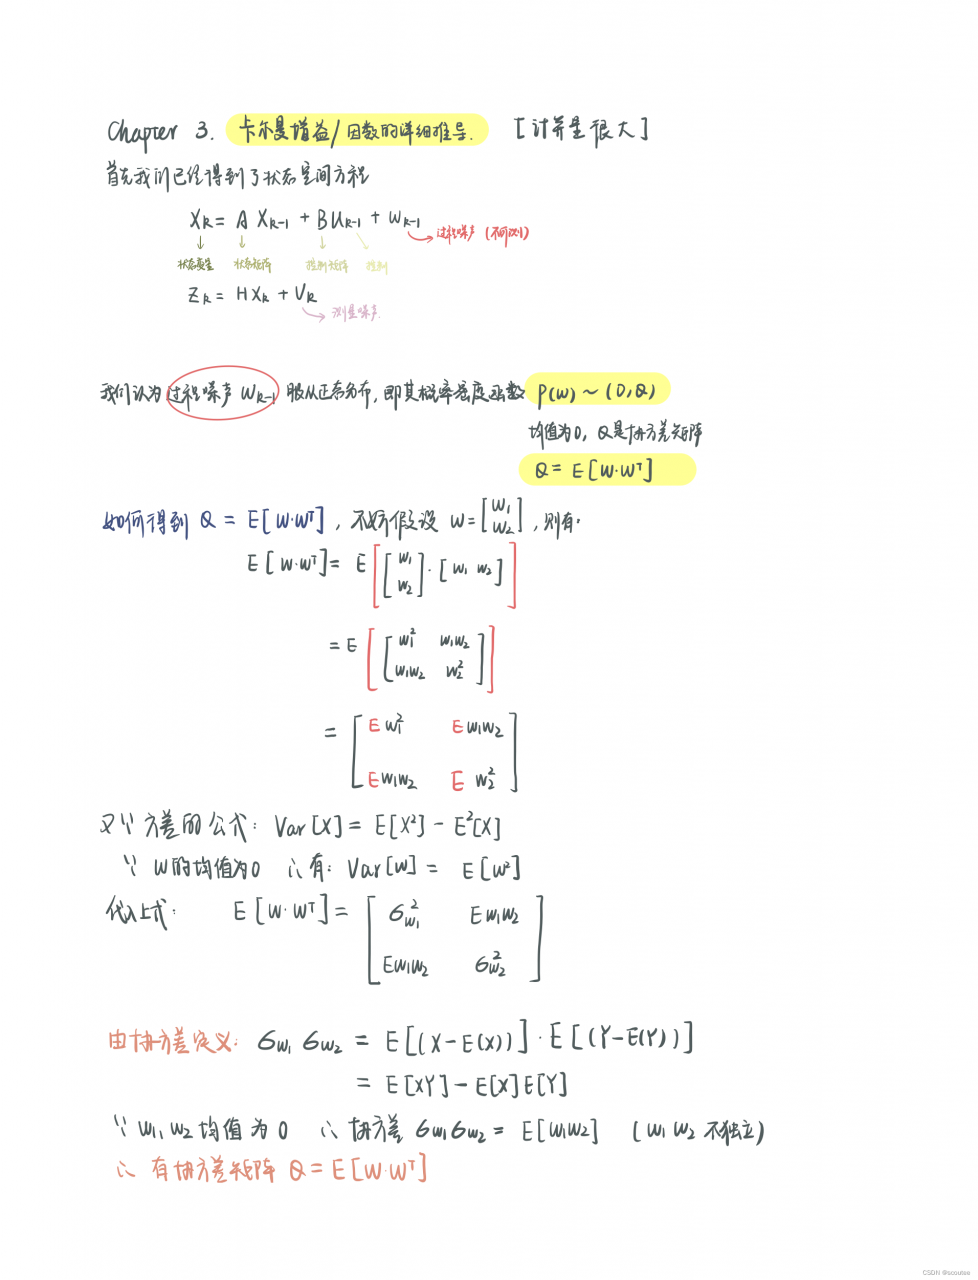 Chapter 3. 卡尔曼增益/因数的详细推导. [计算量很大]
首先我们已经得到了状态空间方程
X_k = A X_{k-1} + B U_{k-1} + W_{k-1} 过程噪声 (不可测)
状态变量 状态矩阵 控制矩阵 控制
Z_k = H X_k + V_k
测量噪声.
我们认为过程噪声 W_{k-1} 服从正态分布, 即其概率密度函数 P(w) ~ (0, Q)
均值为0, Q是协方差矩阵
Q = E[W·W^T]
如何得到 Q = E[W·W^T], 不妨假设 W = [W_1 W_2], 则有.
E[W·W^T] = E[[W_1 W_2]·[W_1 W_2]]
= E[[W_1^2 W_1W_2 W_1W_2 W_2^2]]
= [E W_1^2 E W_1W_2 E W_1W_2 E W_2^2]
又∵ 方差的公式: Var[X] = E[X^2] - E^2[X]
∵ W的均值为0 ∴有: Var[W] = E[W^2]
代入上式: E[W·W^T] = [σ_{W_1}^2 E W_1W_2 E W_1W_2 σ_{W_2}^2]
由协方差定义: σ_{W_1} σ_{W_2} = E[(X-E(X))]·E[(Y-E(Y))]
= E[XY] - E[X]E[Y]
∵ W_1, W_2 均值为0 ∴ 协方差 σ_{W_1}σ_{W_2} = E[W_1W_2] (W_1 W_2 不独立)
∴ 有协方差矩阵 Q = E[W·W^T]